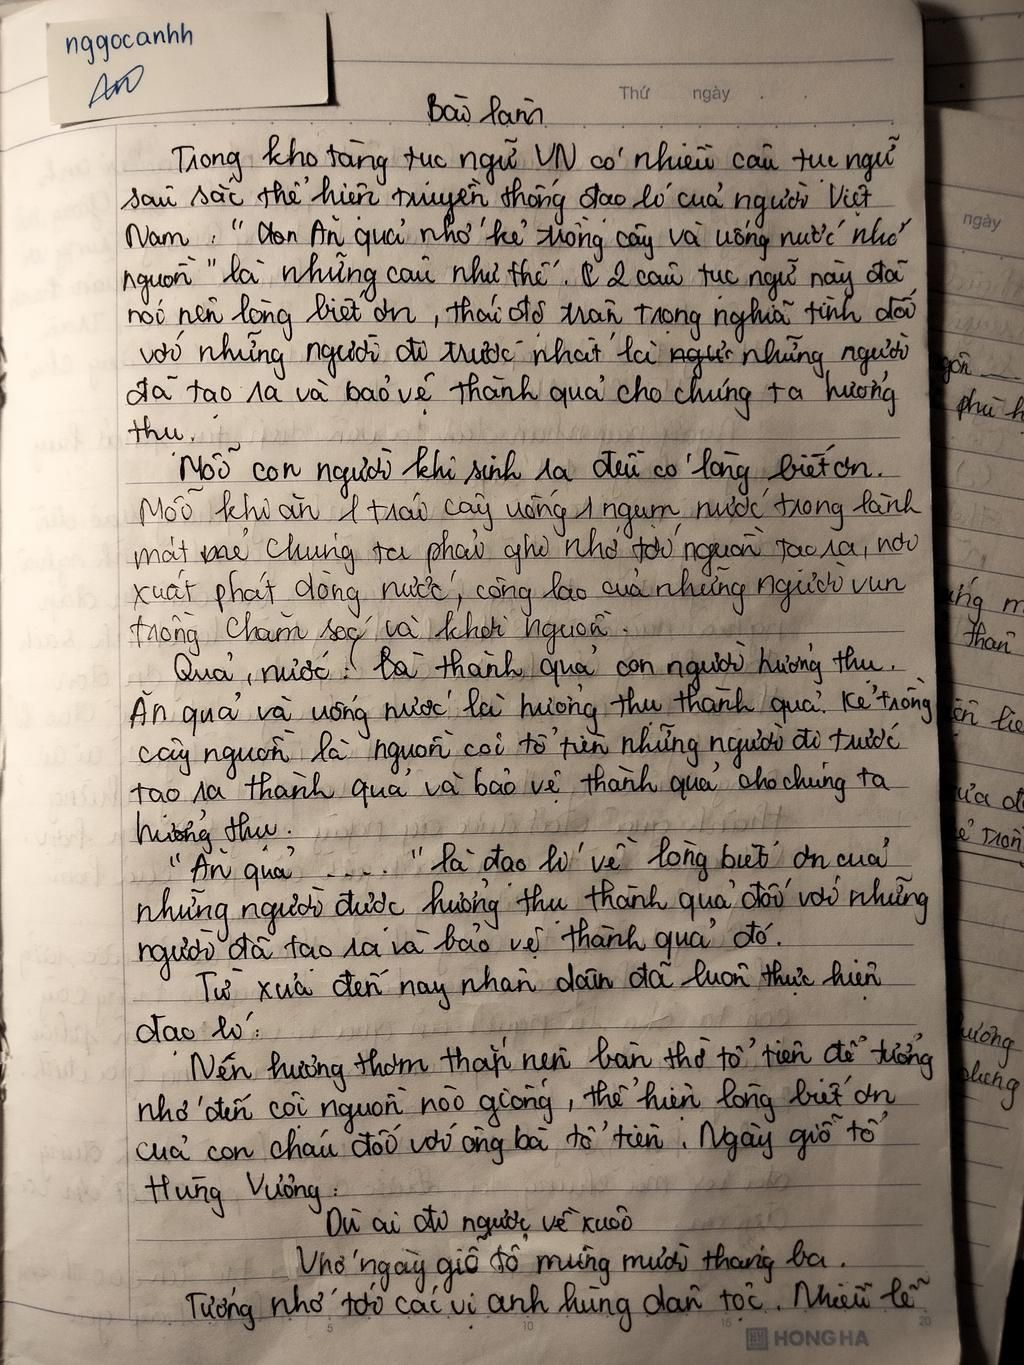 nggocanhh
Thứ ngày
Bài làm
Trong kho tàng tục ngữ VN có nhiều câu tục ngữ
sâu sắc thể hiện truyền thống đạo lí của người Việt
Nam. "Ăn quả nhớ kẻ trồng cây và uống nước nhớ
nguồn" là những câu như thế. 2 câu tục ngữ này đã
nói nên lòng biết ơn, thái độ trân trọng nghĩa tình đối
với những người đi trước nhất là những người
đã tạo ra và bảo vệ thành quả cho chúng ta hưởng
thụ.
Mỗi con người khi sinh ra đều có lòng biết ơn.
Mỗi khi ăn 1 trái cây uống 1 ngụm nước trong lành
mát mẻ chúng ta phải ghi nhớ tới nguồn tạo ra, nơi
xuất phát dòng nước, công lao của những người vun
trồng chăm sóc và khơi nguồn.
Quả, nước: Là thành quả con người hưởng thụ.
Ăn quả và uống nước là hưởng thụ thành quả. Kẻ trồng
cây nguồn là nguồn cội tổ tiên những người đi trước
tạo ra thành quả và bảo vệ thành quả cho chúng ta
hưởng thụ.
"Ăn quả ....." là đạo lí về lòng biết ơn của
những người được hưởng thụ thành quả đối với những
người đã tạo ra và bảo vệ thành quả đó.
Từ xưa đến nay nhân dân đã luôn thực hiện
đạo lí:
Nến hương thơm thắp nên bàn thờ tổ tiên để tưởng
nhớ đến cội nguồn nòi giống, thể hiện lòng biết ơn
của con cháu đối với ông bà tổ tiên. Ngày giỗ tổ
Hùng Vương:
Dù ai đi ngược về xuôi
Nhớ ngày giỗ tổ mùng mười tháng ba.
Tưởng nhớ tới các vị anh hùng dân tộc. Nhiều lễ
5 10 15 20
HONG HA
ngày